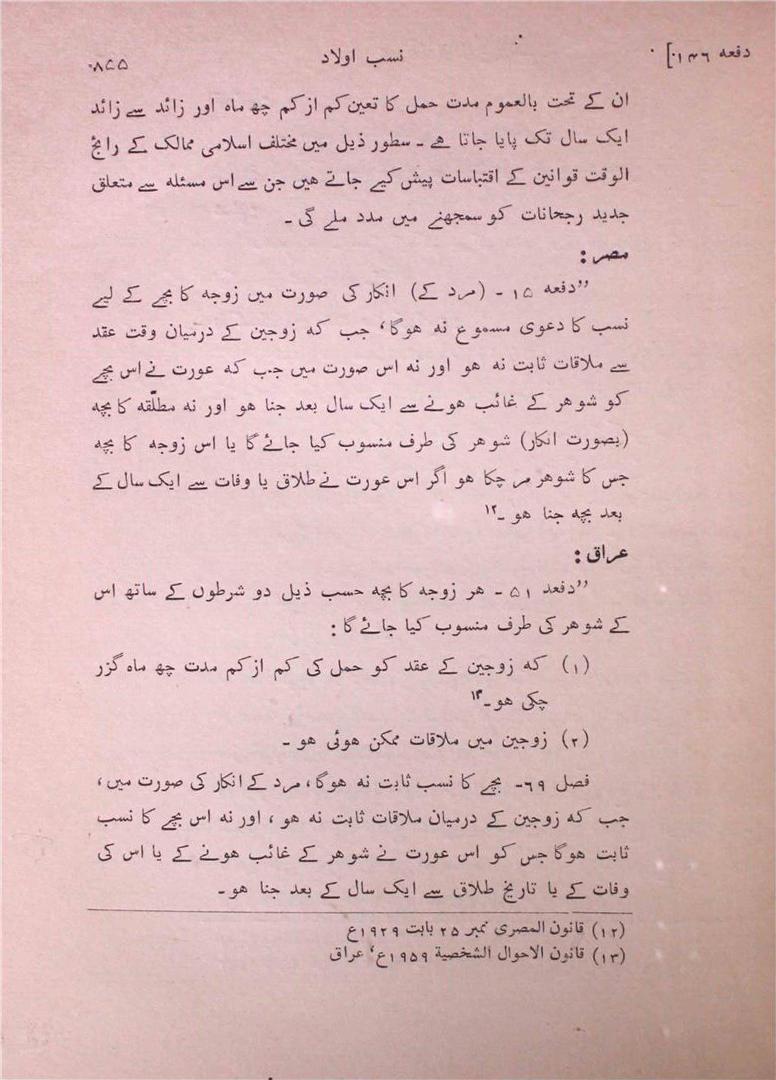 دفعہ ۱۴۶]
نسب اولاد
۸۷۵
ان کے تحت بالعموم مدت حمل کا تعین کم از کم چھ ماہ اور زائد سے زائد
ایک سال تک پایا جاتا ہے ۔ سطور ذیل میں مختلف اسلامی ممالک کے رائج
الوقت قوانین کے اقتباسات پیش کیے جاتے ہیں جن سے اس مسئلہ سے متعلق
جدید رجحانات کو سمجھنے میں مدد ملے گی ۔
مصر :
”دفعہ ۱۵ ۔ (مرد کے) انکار کی صورت میں زوجہ کا بچے کے لیے
نسب کا دعوی مسموع نہ ہوگا، جب کہ زوجین کے درمیان وقت عقد
سے ملاقات ثابت نہ ہو اور نہ اس صورت میں جب کہ عورت نے اس بچے
کو شوہر کے غائب ہونے سے ایک سال بعد جنا ہو اور نہ مطلّقہ کا بچہ
(بصورت انکار) شوہر کی طرف منسوب کیا جائے گا یا اس زوجہ کا بچہ
جس کا شوہر مر چکا ہو اگر اس عورت نے طلاق یا وفات سے ایک سال کے
بعد بچہ جنا ہو ۔۱۲
عراق :
”دفعہ ۵۱ ۔ ہر زوجہ کا بچہ حسب ذیل دو شرطوں کے ساتھ اس
کے شوہر کی طرف منسوب کیا جائے گا :
(۱) کہ زوجین کے عقد کو حمل کی کم از کم مدت چھ ماہ گزر
چکی ہو ۔۱۳
(۲) زوجین میں ملاقات ممکن ہوئی ہو ۔
فصل ۶۹ ۔ بچے کا نسب ثابت نہ ہوگا، مرد کے انکار کی صورت میں،
جب کہ زوجین کے درمیان ملاقات ثابت نہ ہو ، اور نہ اس بچے کا نسب
ثابت ہوگا جس کو اس عورت نے شوہر کے غائب ہونے کے یا اس کی
وفات کے یا تاریخ طلاق سے ایک سال کے بعد جنا ہو ۔
(۱۲) قانون المصری نمبر ۲۵ بابت ۱۹۲۹ع
(۱۳) قانون الاحوال الشخصیة ۱۹۵۹ع، عراق